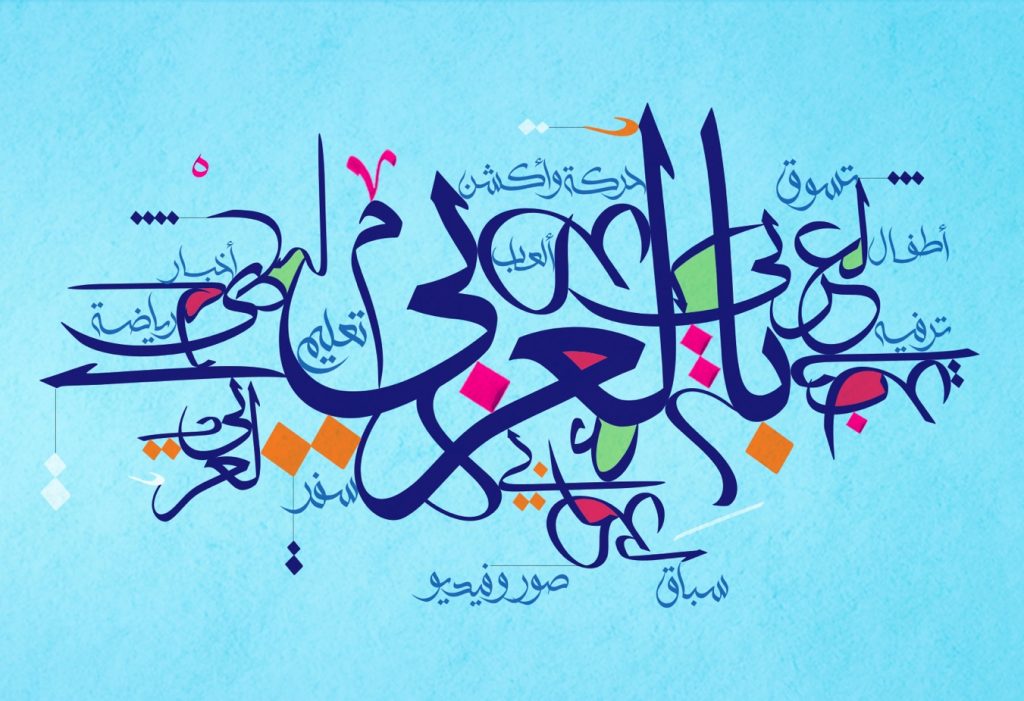 تسوق
حركة وأكشن
أطفال
ألعاب
أخبار
ترفيه
رياضة
تعليم
بالعربي
العربي
سفر
سباق
صور وفيديو